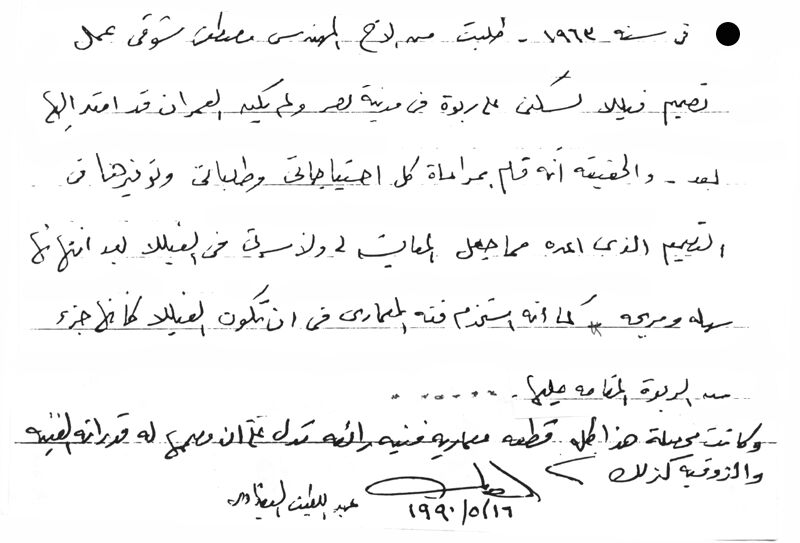 فى سنه ١٩٦٣ - طلبت من الاخ المهندس مصطفى شوقى عمل
تصميم فيللا لسكنى على ربوة فى مدينة نصر ولم يكن العمران قد امتد إليها
بعد - والحقيقه أنه قام بمراعاة كل احتياجاتى وطلباتى وتوفيرها فى
التصميم الذى اعده مما جعل المعايشه لى ولأسرتى فى الفيللا بعد انتهائها
سهله ومريحه كما أنه استخدم فنه المعمارى فى ان تكون الفيللا كأنها جزء
من الربوة المقامه عليها - . . . . . .
وكانت محصلة هذا كله قطعه معماريه فنيه رائعه تدل على ان مصممها له قدراته الفنيه
والذوقيه كذلك
عبد اللطيف البغدادى
١٩٩٠/٥/١٦